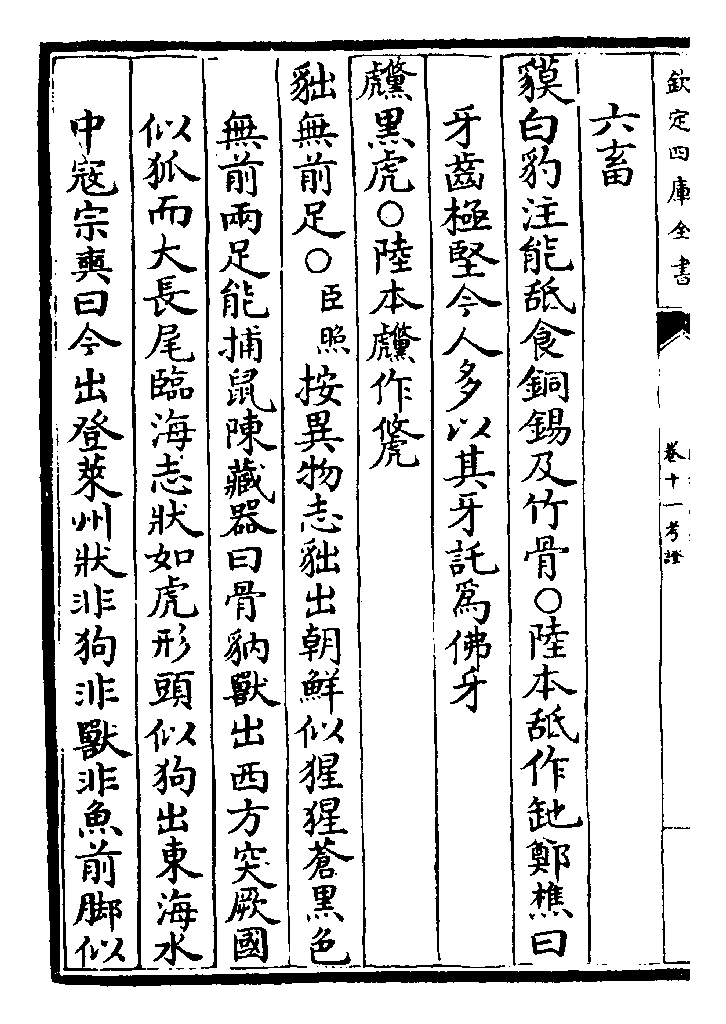 欽定四庫全書
卷十一考證
六畜
貘白豹注能舐食銅錫及竹骨○陸本舐作䑛鄭樵曰
牙齒極堅今人多以其牙託爲佛牙
虪黑虎○陸本虪作㣈
貀無前足○臣照按異物志貀出朝鮮似猩猩蒼黑色
無前兩足能捕鼠陳藏器曰骨貀獸出西方突厥國
似狐而大長尾臨海志狀如虎形頭似狗出東海水
中寇宗奭曰今出登萊州狀非狗非獸非魚前脚似